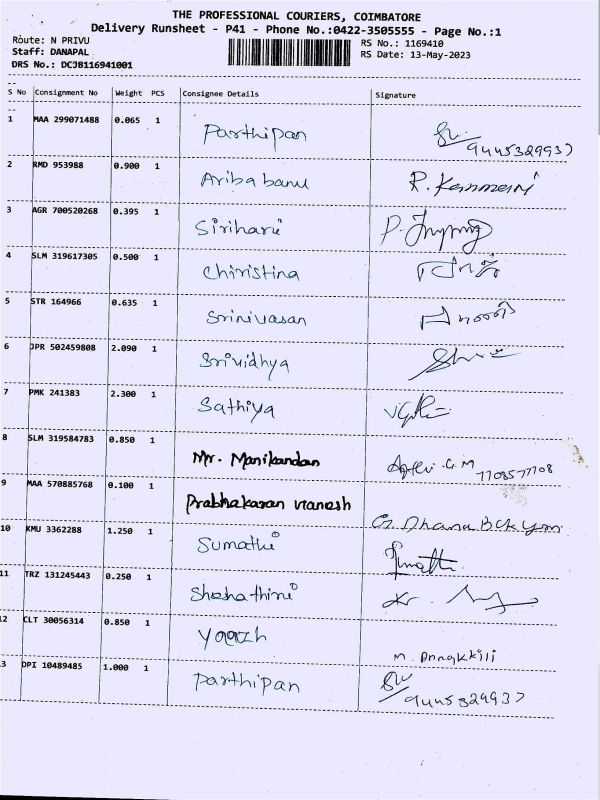 THE PROFESSIONAL COURIERS, COIMBATORE
Delivery Runsheet - P41 - Phone No.:0422-3505555 - Page No.:1
Route: N PRIVU
RS No.: 1169410
Staff: DANAPAL
RS Date: 13-May-2023
DRS No.: DCJB116941001
S No Consignment No Weight PCS Consignee Details Signature
1 MAA 299071488 0.065 1 Parthipan 9445329937
2 RMD 953988 0.900 1 Aribabanu
3 AGR 700520268 0.395 1 Siriharii
4 SLM 319617305 0.500 1 Chiristina
5 STR 164966 0.635 1 Srinivasan
6 JPR 502459808 2.090 1 Srividhya
7 PMK 241383 2.300 1 Sathiya
8 SLM 319584783 0.850 1 Mr. Manikandan 7708577708
9 MAA 570885768 0.100 1 Prabhakaran
10 KMU 3362288 1.250 1 Sumathi
11 TRZ 131245443 0.250 1
12 CLT 30056314 0.850 1
13 DPI 10489485 1.000 1 Parthipan 9445329937